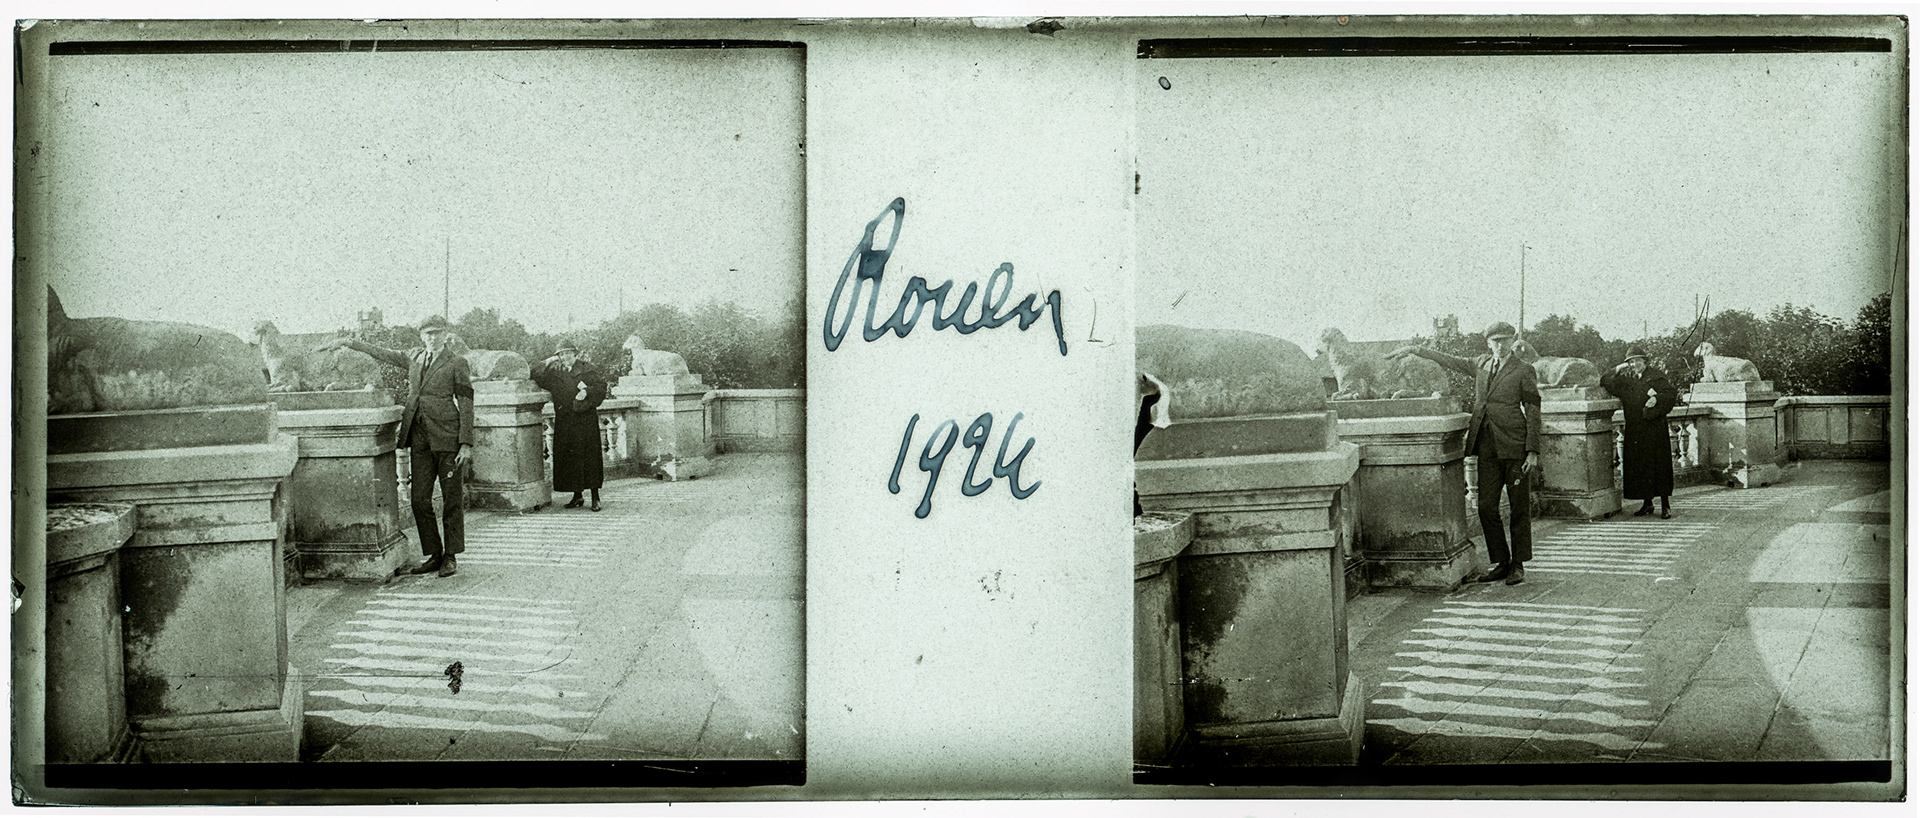 Rouen
1924